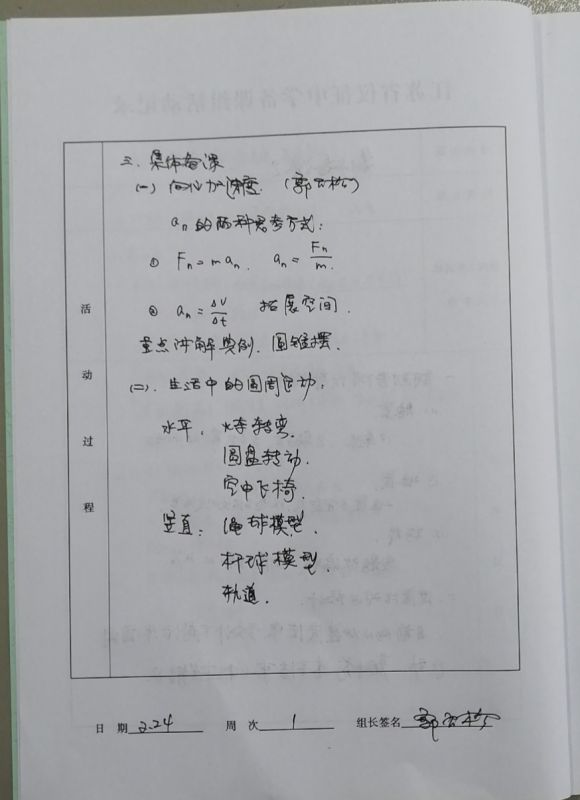 三、集体备课
(一) 向心加速度. (郭云松)
aₙ的两种思考方式:
① Fₙ=maₙ. aₙ=Fₙ/m.
② aₙ=ΔV/Δt 拓展空间.
重点讲解典例. 圆锥摆.
(二). 生活中的圆周运动:
水平: 火车转弯.
圆盘转动.
空中飞椅.
竖直: 绳球模型.
杆球模型.
轨道.
活动过程
日 期 2.24 周 次 1 组长签名